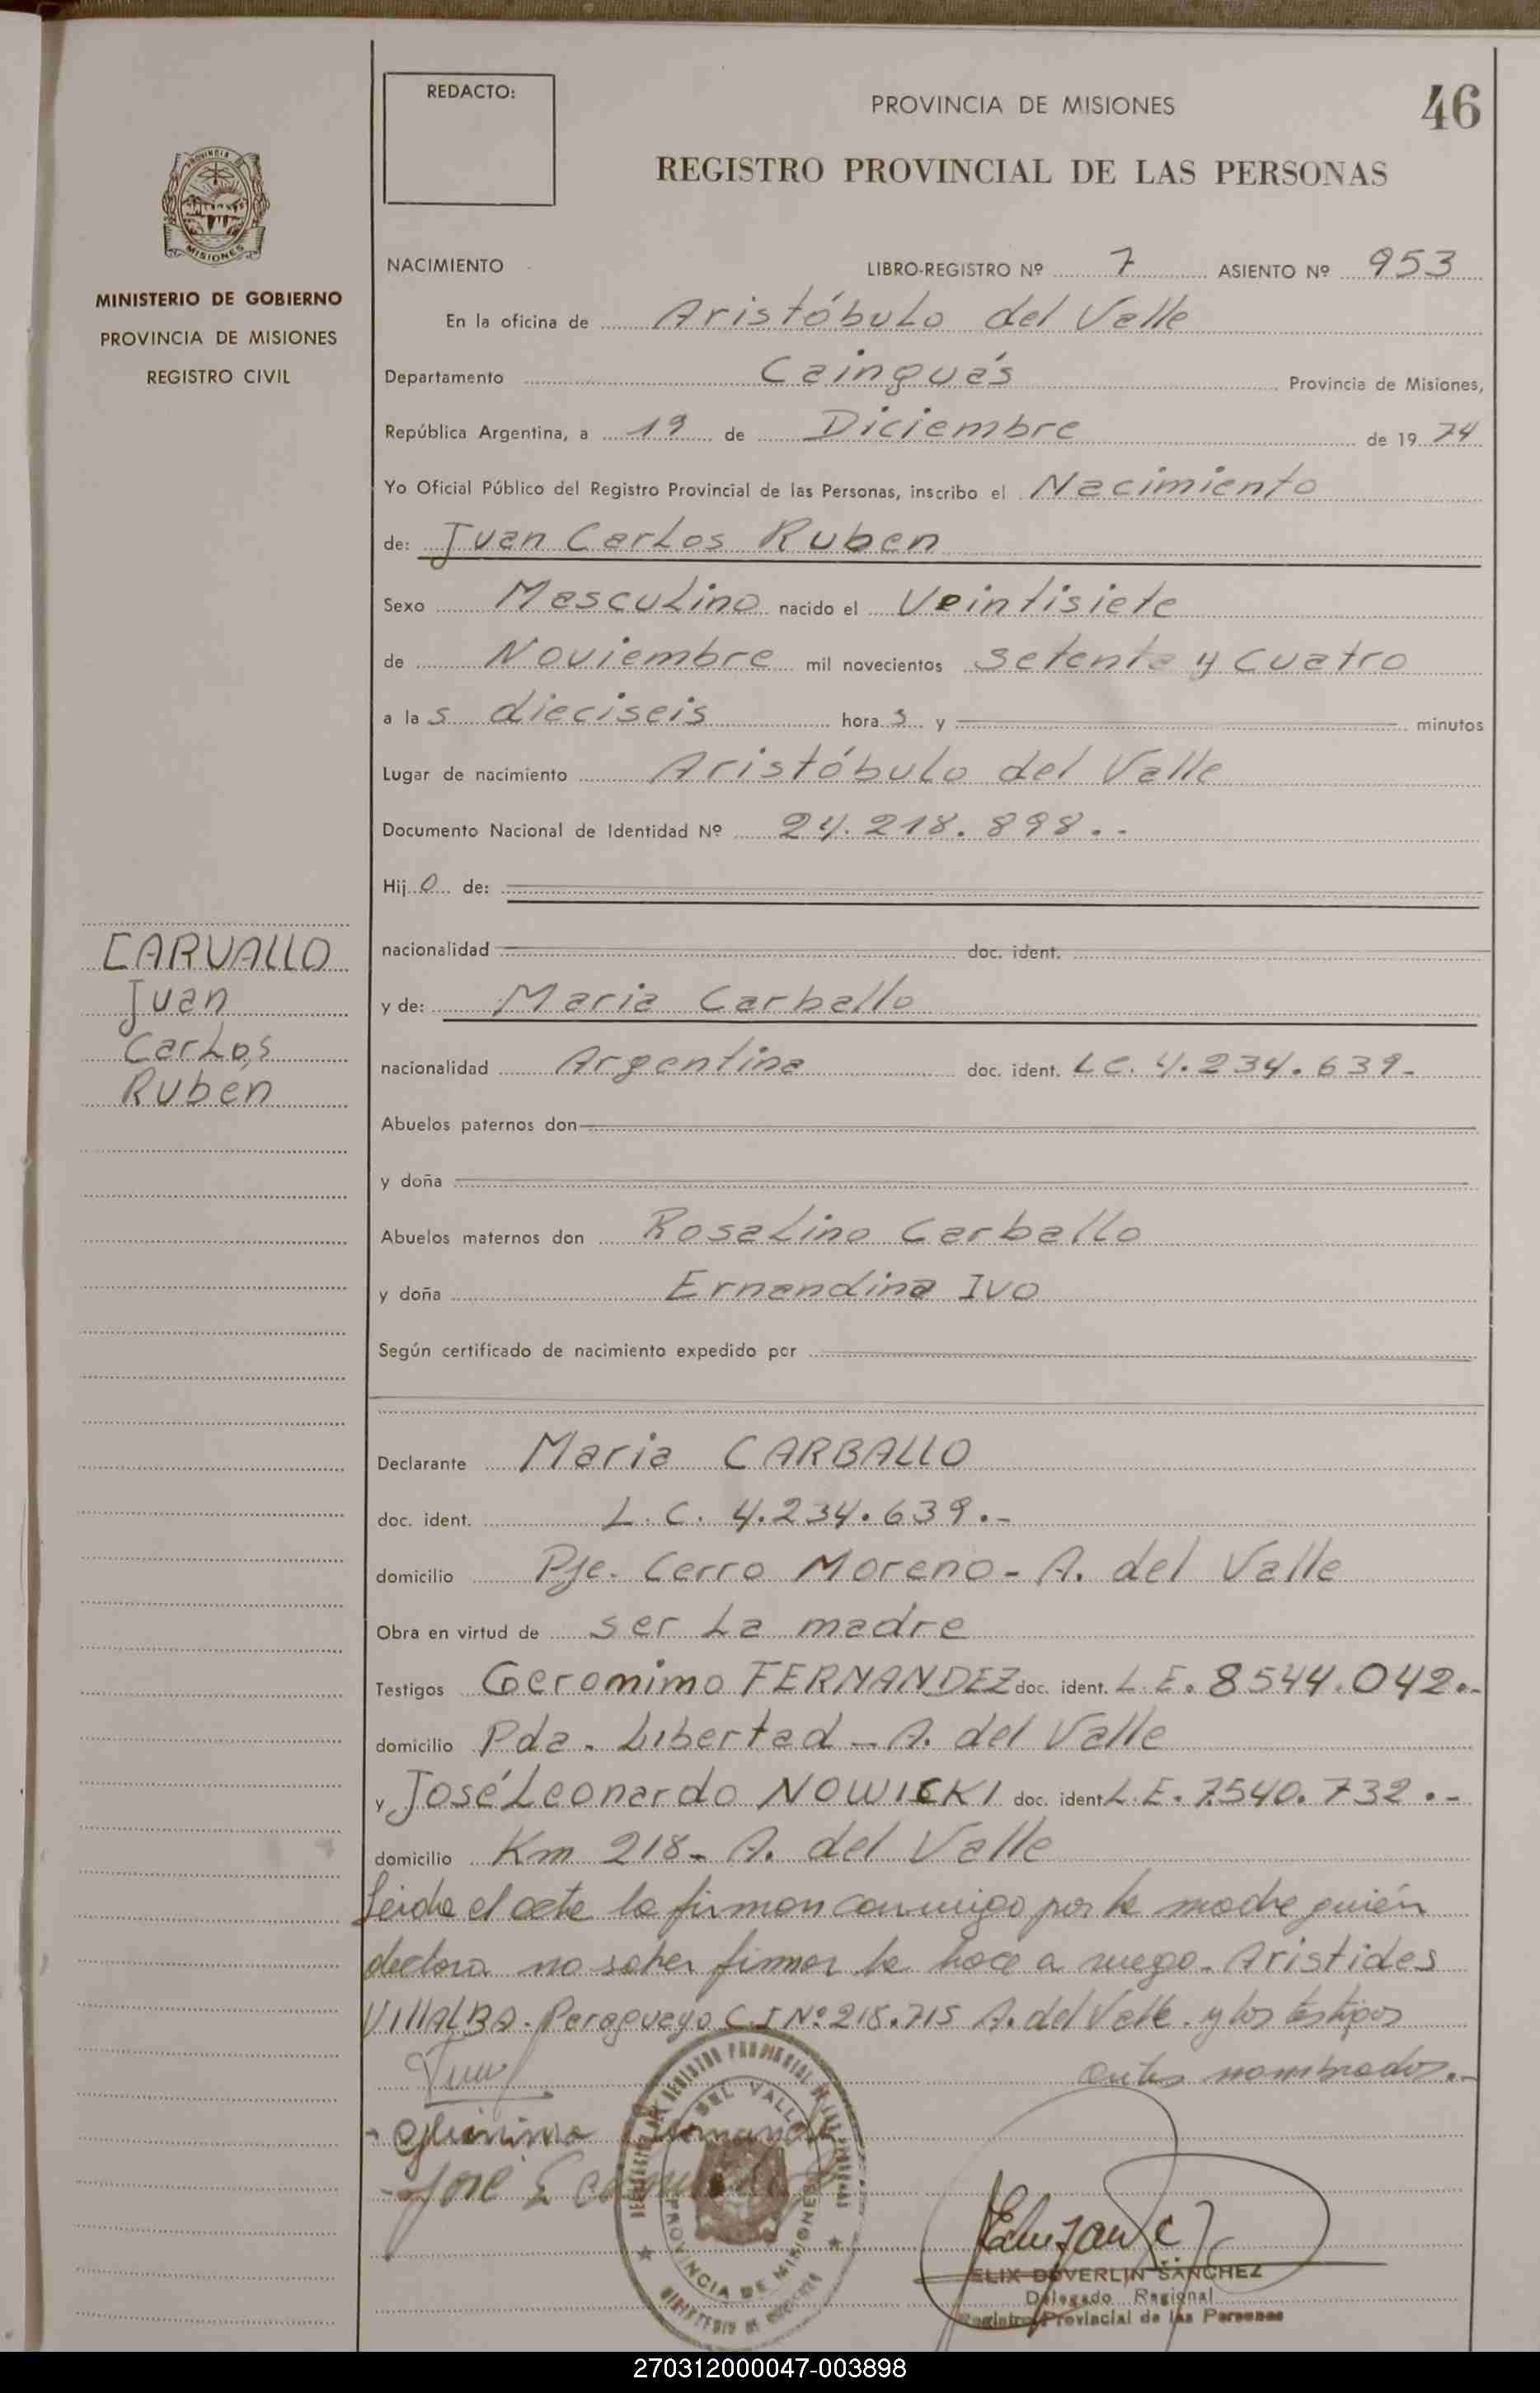 REDACTO:
PROVINCIA DE MISIONES
46
REGISTRO PROVINCIAL DE LAS PERSONAS
MISIONES
MINISTERIO DE GOBIERNO
PROVINCIA DE MISIONES
REGISTRO CIVIL
NACIMIENTO LIBRO-REGISTRO Nº 7 ASIENTO Nº 953
En la oficina de Aristóbulo del Valle
Departamento Cainguás Provincia de Misiones,
República Argentina, a 19 de Diciembre de 19 74
Yo Oficial Público del Registro Provincial de las Personas, inscribo el Nacimiento
de: Juan Carlos Ruben
Sexo Masculino nacido el Veintisiete
de Noviembre mil novecientos setenta y cuatro
a la s dieciseis hora s y minutos
Lugar de nacimiento Aristóbulo del Valle
Documento Nacional de Identidad Nº 24.218.898.-
Hij o de:
nacionalidad doc. ident.
y de: Maria Carballo
nacionalidad Argentina doc. ident. LC. 4.234.639.-
Abuelos paternos don
y doña
Abuelos maternos don Rosalino Carballo
y doña Ernandina Ivo
Según certificado de nacimiento expedido por
CARVALLO
Juan
Carlos
Ruben
Declarante Maria CARBALLO
doc. ident. L.C. 4.234.639.-
domicilio Pje. Cerro Moreno - A. del Valle
Obra en virtud de ser la madre
Testigos Geronimo FERNANDEZ doc. ident. L.E. 8544.042.-
domicilio Pda. Libertad - A. del Valle
y José Leonardo NOWICKI doc. ident. L.E. 7.540.732.-
domicilio Km 218 - A. del Valle
Leida el acta la firman conmigo por la madre quién
declara no saber firmar lo hace a ruego - Aristides
VILLALBA. Paraguayo C.I Nº 218.715 A. del Valle. y los testigos
antes nombrados.-
DEL VALLE
PROVINCIA DE MISIONES
ELIX DUVERLIN SANCHEZ
Delegado Regional
Registro Provincial de las Personas
270312000047-003898